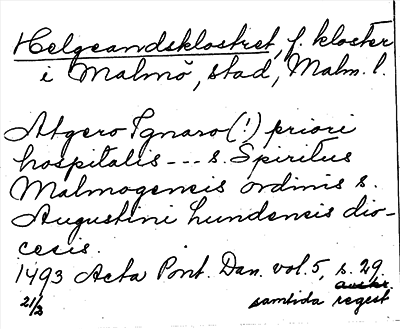 Helgeandsklostret, f. kloster
i Malmö, stad, Malm. l.
Atgero Ignaro (!) priori
hospitalis --- s. Spiritus
Malmogensis ordinis s.
Augustini Lundensis dio-
cesis.
1493 Acta Pont. Dan. vol. 5, s. 29
2/3
samtida regest